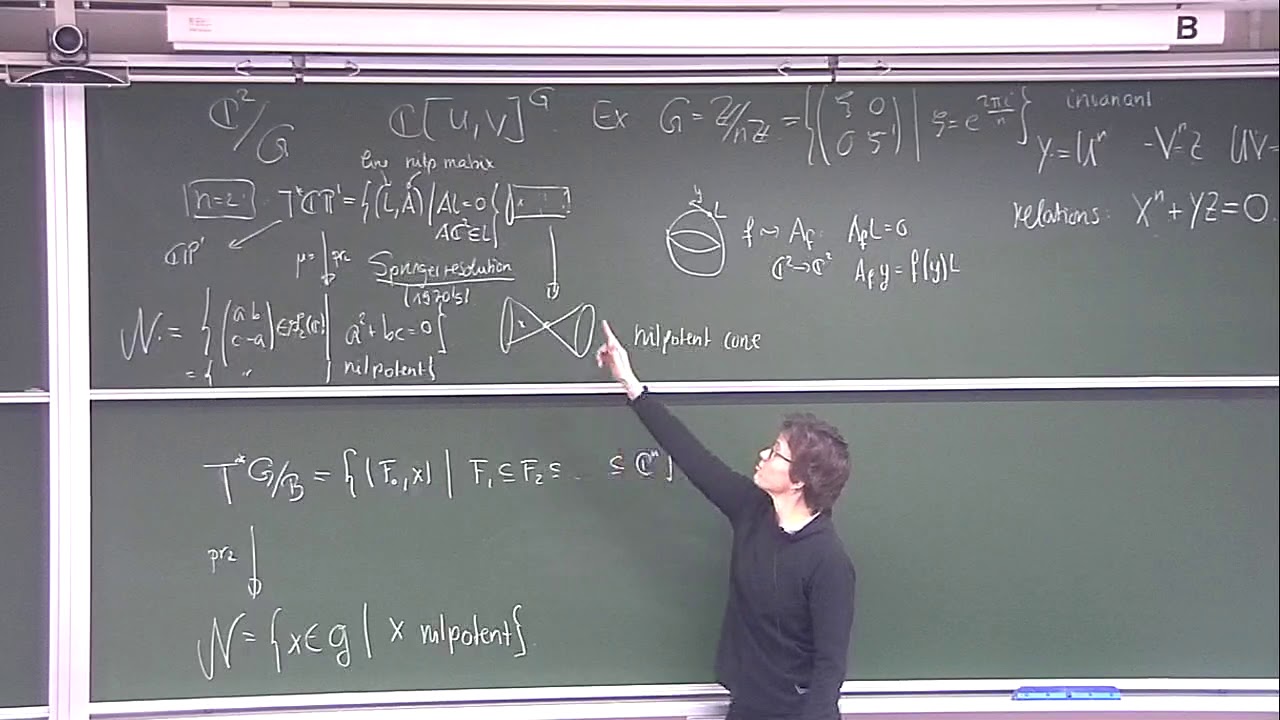 B
ℂ²/G ℂ[u,v]^G Ex G = ℤ/nℤ = {(ξ 0 | ξ = e^{2πi/n}} invariant
0 ξ^{-1})
Y = uⁿ -vⁿ = Z uv =
relations: Xⁿ + YZ = 0
line nilp matrix
n=2: T*ℂP¹ = {(L,A) | AL=0
Aℂ² ⊆ L}
ℂP¹
μ = pr₂
Springer resolution
(1970's)
y L
f ⇝ A_f: A_f L = 0
ℂ² → ℂ² A_f y = f(y) L
𝒩 = {(a b
c -a) ∈ sl₂(ℂ) | a² + bc = 0}
= { " | nilpotent}
nilpotent cone
T*G/B = {(F., x) | F₁ ⊆ F₂ ⊆ .. ⊆ ℂⁿ}
pr₂
𝒩 = {x ∈ g | x nilpotent}